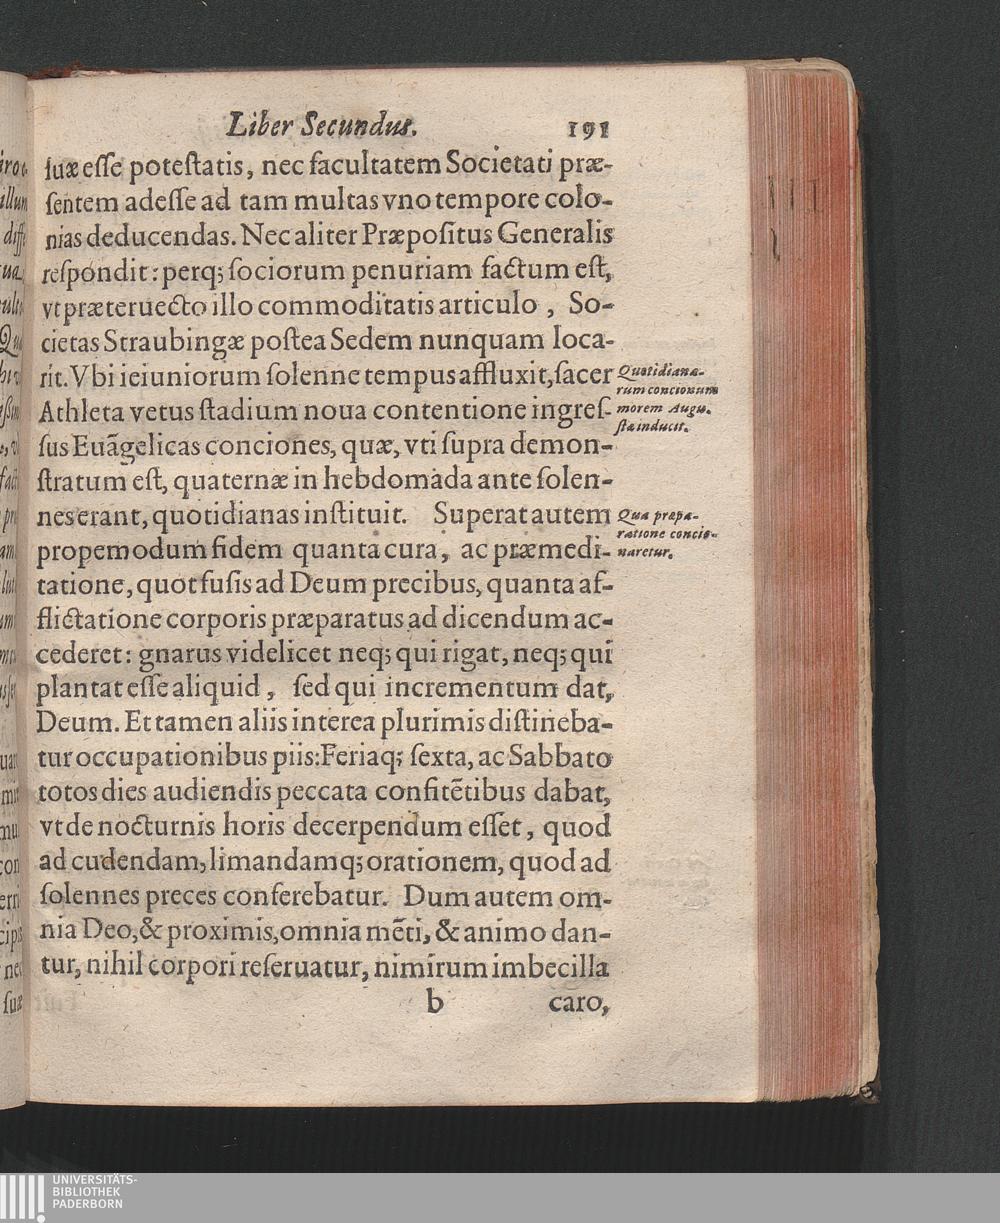 Liber Secundus. 191
suæ esse potestatis, nec facultatem Societati præ-
sentem adesse ad tam multas vno tempore colo-
nias deducendas. Nec aliter Præpositus Generalis
respondit: perq; sociorum penuriam factum est,
vt præteruecto illo commoditatis articulo, So-
cietas Straubingæ postea Sedem nunquam loca-
rit. Vbi ieiuniorum solenne tempus affluxit, sacer
Athleta vetus stadium noua contentione ingres-
sus Euãgelicas conciones, quæ, vti supra demon-
stratum est, quaternæ in hebdomada ante solen-
nes erant, quotidianas instituit. Superat autem
propemodum fidem quanta cura, ac præmedi-
tatione, quot fusis ad Deum precibus, quanta af-
flictatione corporis præparatus ad dicendum ac-
cederet: gnarus videlicet neq; qui rigat, neq; qui
plantat esse aliquid, sed qui incrementum dat,
Deum. Et tamen aliis interea plurimis distineba-
tur occupationibus piis: Feriaq; sexta, ac Sabbato
totos dies audiendis peccata confitẽtibus dabat,
vt de nocturnis horis decerpendum esset, quod
ad cudendam, limandamq; orationem, quod ad
solennes preces conferebatur. Dum autem om-
nia Deo, & proximis, omnia mẽti, & animo dan-
tur, nihil corpori reseruatur, nimirum imbecilla
b caro,
Quotidiana-
rum concionum
morem Augu-
stæ inducit.
Qua præpa-
ratione concio-
naretur.
UNIVERSITÄTS-
BIBLIOTHEK
PADERBORN